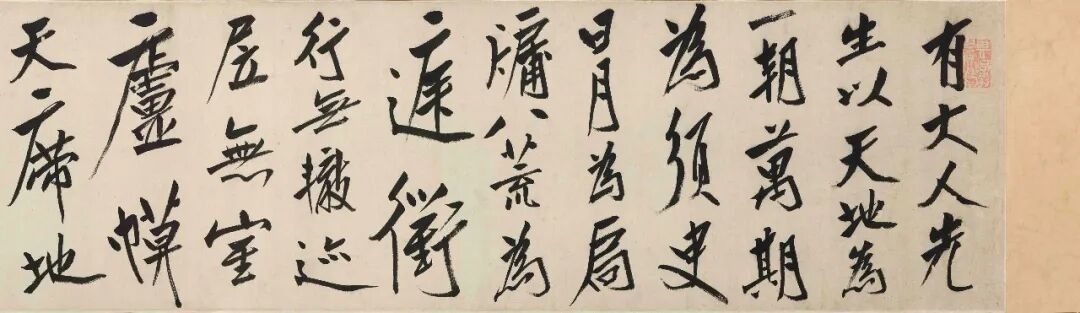 有大人先
生以天地為
一朝萬期
為須臾
日月為扃
牖八荒為
庭衢
行無轍迹
居無室
廬幙
天席地